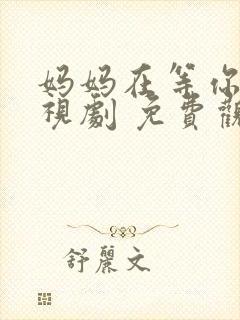 妈妈在等你
視劇 免費觀
舒麗文